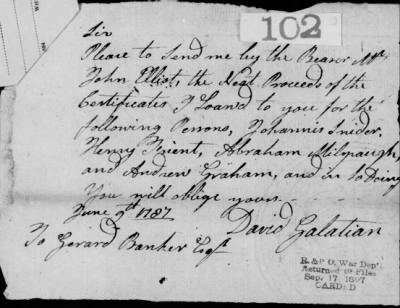 102
Sir
Please to Send me by the Bearer Mr
John Elliot, the Neat Proceeds of the
Certificates I Loan'd to you for the
following Persons, Johannis Snider,
Henry Teient, Abraham Milspaugh,
and Andrew Graham, and in so Doing
You will oblige yours
June 9th 1787 David Galatian
To Gerard Banker Esqr
R. & P. O. War Dept.
Returned to Files
Sep. 17, 1897
CARDED